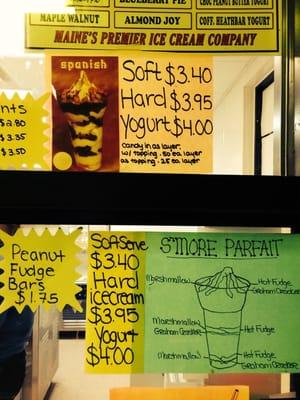 BLUEBERRY PIE
CHOC PEANUT BUTTER YOGURT
MAPLE WALNUT
ALMOND JOY
COFF. HEATHBAR YOGURT
MAINE'S PREMIER ICE CREAM COMPANY
spanish
Soft $3.40
Hard $3.95
Yogurt $4.00
Candy in as layer,
w/ topping .50 ea layer
as topping .25 ea layer
nts
$2.80
$3.35
$3.50
Peanut
Fudge
Bars
$1.75
Softserve
$3.40
Hard
icecream
$3.95
Yogurt
$4.00
S'MORE PARFAIT
Marshmallow
Hot Fudge
Graham Cracker
Marshmallow
Graham Cracker
Hot Fudge
Marshmallow
Hot Fudge
Graham Cracker